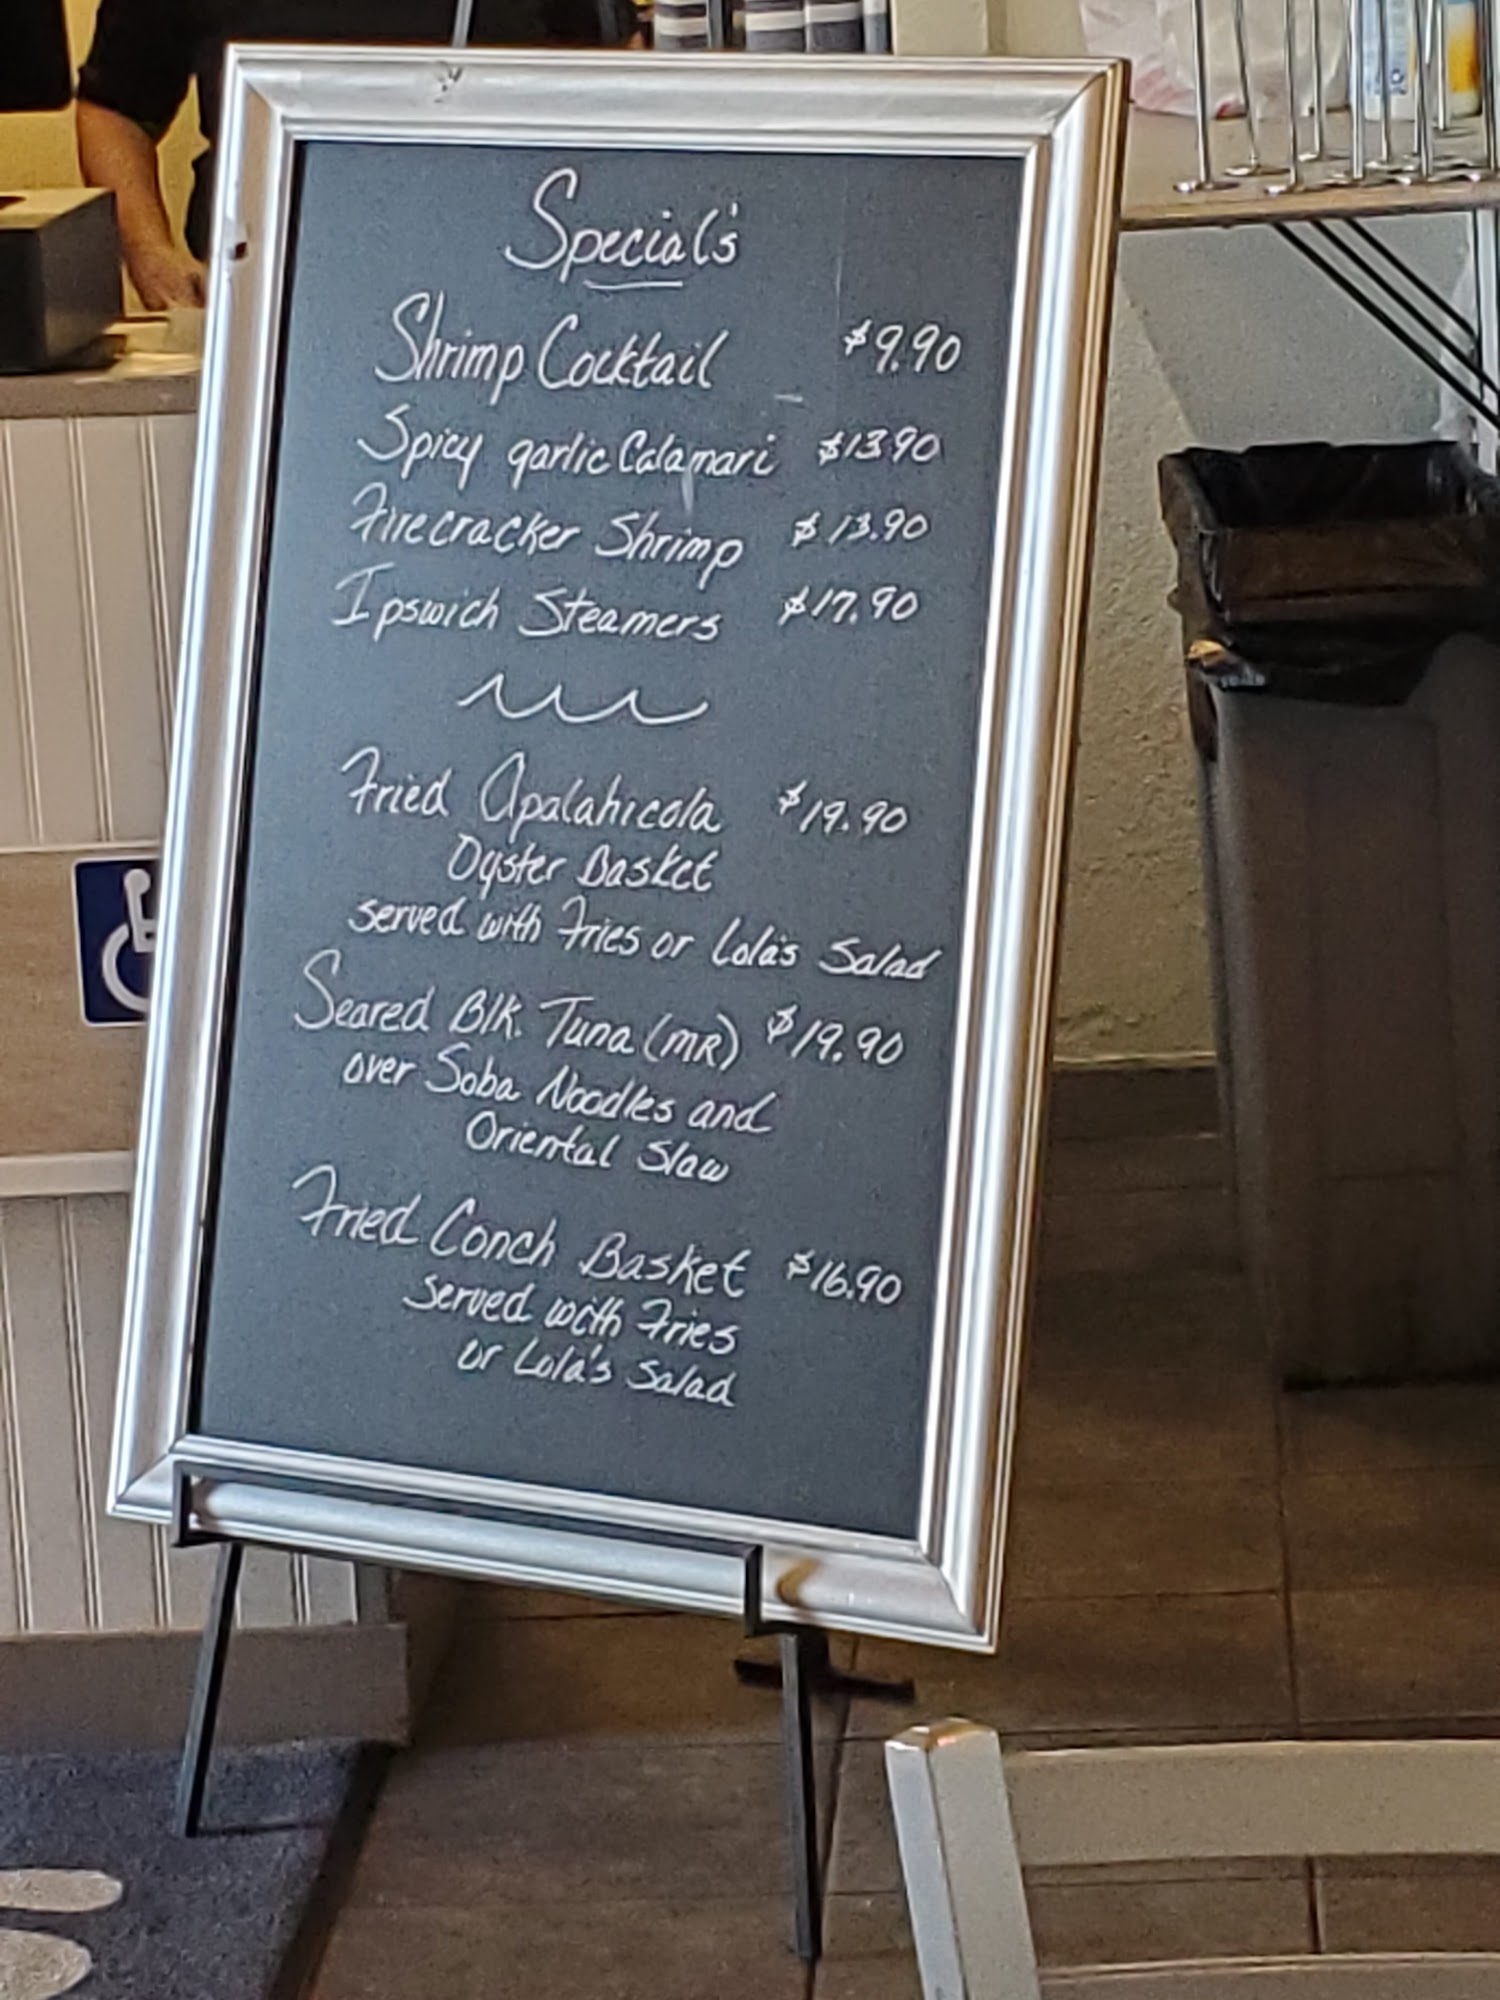 Special's
Shrimp Cocktail $9.90
Spicy garlic Calamari $13.90
Firecracker Shrimp $13.90
Ipswich Steamers $17.90
Fried Apalahicola $19.90
Oyster Basket
served with Fries or Lola's Salad
Seared Blk. Tuna (MR) $19.90
over Soba Noodles and
Oriental Slaw
Fried Conch Basket $16.90
Served with Fries
or Lola's Salad